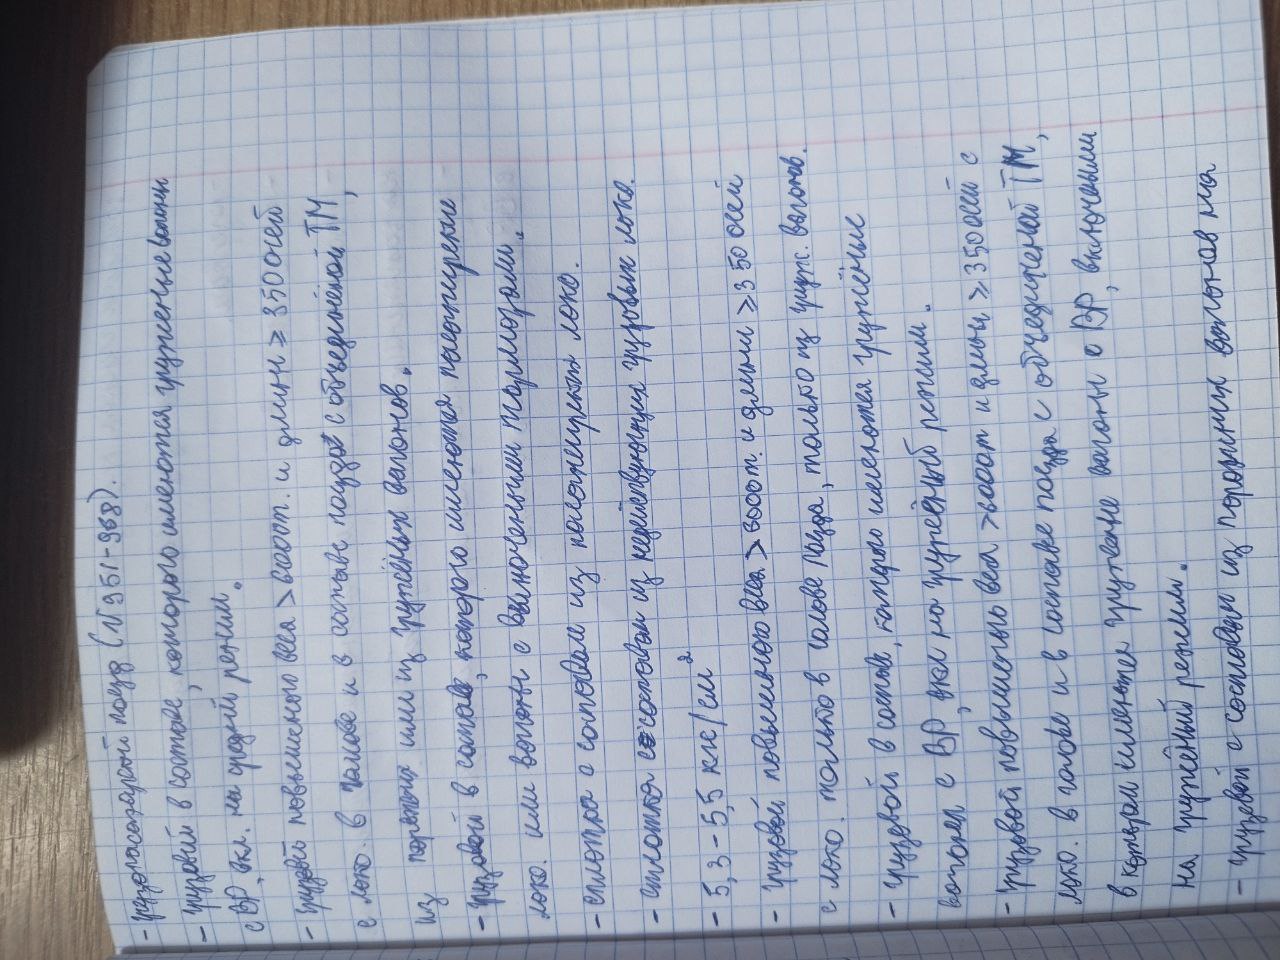 - грузопассажрский поезд (N 951-968).
- грузовой в составе, которого имеются груженые вагоны
с ВР, вкл. на средний режим.
- грузовой повышенного веса > 6000т. и длин ≥ 350 осей
с локо. в голове и в составе поезда с объединённой ТМ,
из порожних или из гружёных вагонов.
- грузовой в составе, которого имеются пассажирские
локо. или вагоны с включенными тормозами.
- сплотка с составом из пассажирских локо.
- сплотка с составом из недействующих грузовых локо.
- 5,3 - 5,5 кгс/см²
- грузовой повышеного веса > 6000т. и длины ≥ 350 осей
с локо. только в голове поезда, только из груж. вагонов.
- грузовой в составе, которого имеются гружёные
с ВР, вкл на гружёный режим.
- грузовой повышеного веса > 6000т и длины ≥ 350 осей с
локо. в голове и в составе поезда с объединённой ТМ,
в котором имеются груженые вагоны с ВР, включенными
на гружёный режим.
- грузовой с составом из порожних вагонов на